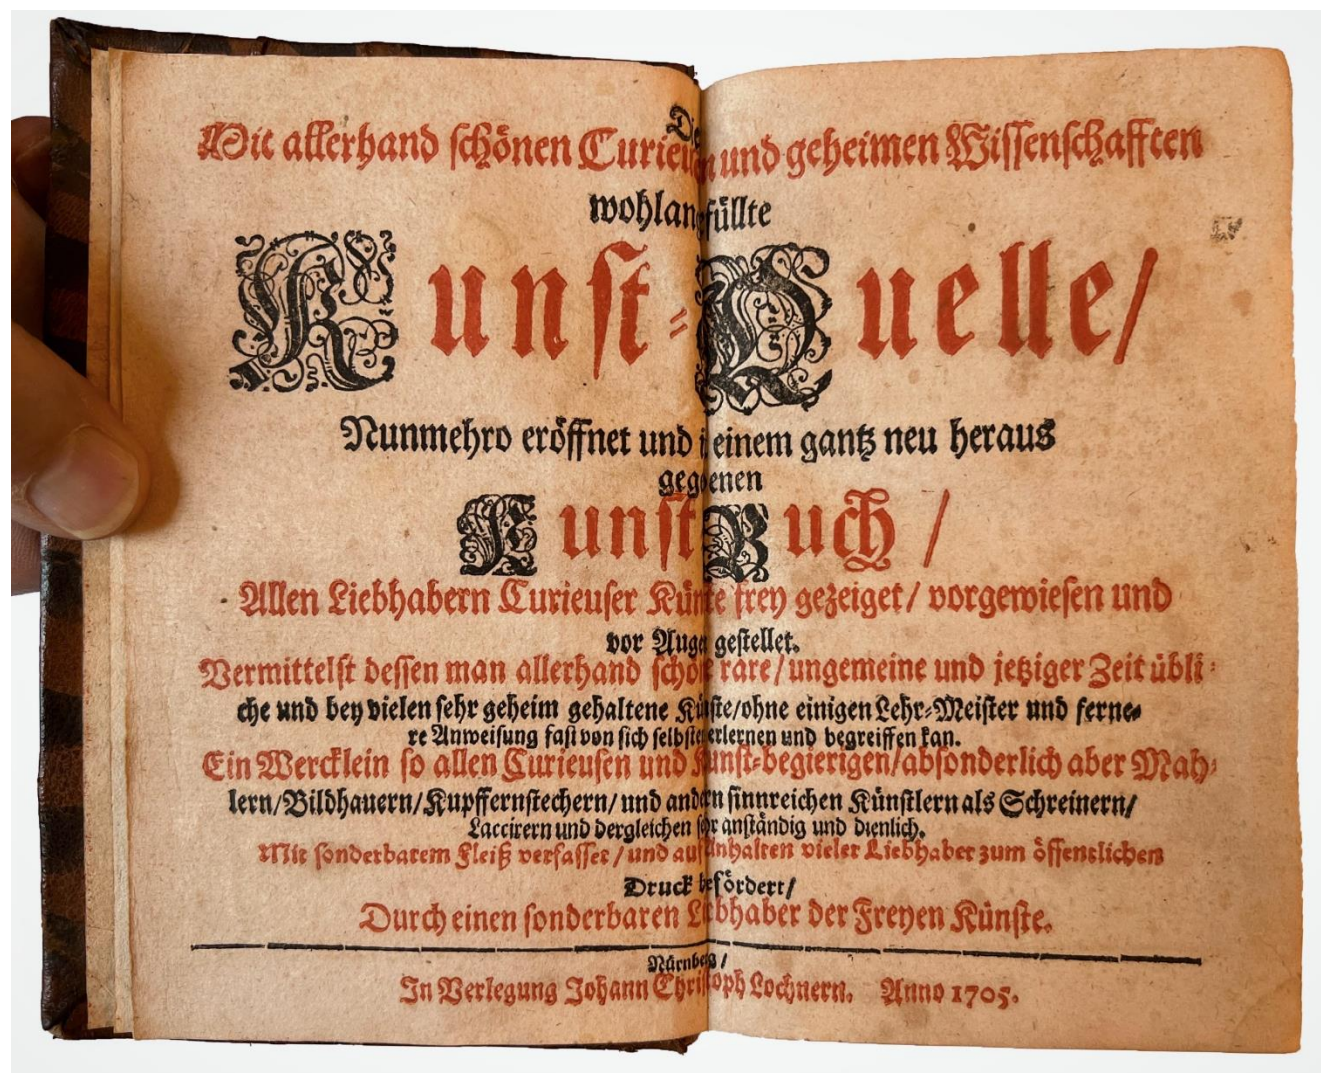 Die
Mit allerhand schönen Curieusen und geheimen Wissenschafften
wohlangefüllte
Kunst-Quelle/
Nunmehro eröffnet und in einem gantz neu heraus
gegebenen
Kunst Buch /
Allen Liebhabern Curieuser Künste frey gezeiget/ vorgewiesen und
vor Augen gestellet.
Vermittelst dessen man allerhand schöne rare/ungemeine und jetziger Zeit übli-
che und bey vielen sehr geheim gehaltene Künste/ohne einigen Lehr-Meister und ferne-
re Anweisung fast von sich selbsten erlernen und begreiffen kan.
Ein Wercklein so allen Curieusen und Kunst-begierigen/absonderlich aber Mah-
lern/Bildhauern/Kupffernstechern/und andern sinnreichen Künstlern als Schreinern/
Laccirern und dergleichen sehr anständig und dienlich.
Mit sonderbarem Fleiß verfasset/und auf Anhalten vieler Liebhaber zum öffentlichen
Druck befördert/
Durch einen sonderbaren Liebhaber der Freyen Künste.
Nürnberg/
In Verlegung Johann Christoph Lochnern. Anno 1705.